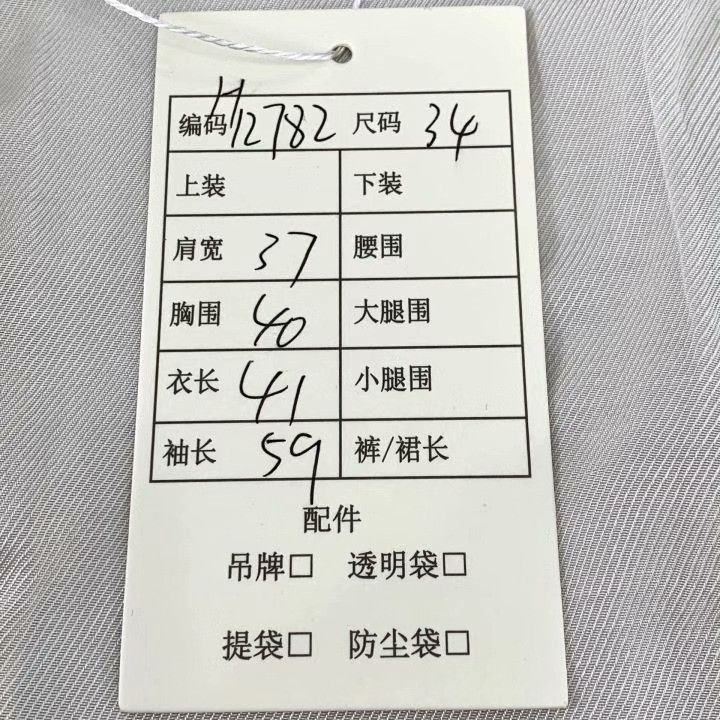 编码 H12782 尺码 34
上装 下装
肩宽 37 腰围
胸围 40 大腿围
衣长 41 小腿围
袖长 59 裤/裙长
配件
吊牌□ 透明袋□
提袋□ 防尘袋□